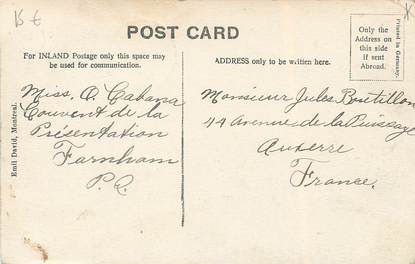 15 €
POST CARD
For INLAND Postage only this space may
be used for communication.
ADDRESS only to be written here.
Only the
Address on
this side
if sent
Abroad.
Printed in Germany.
Emil David, Montreal.
Miss. O. Cabana
Couvent de la
Présentation
Farnham
P.Q.
Monsieur Jules Boutillon
44 Avenue de la Puissaye
Auxerre
France.